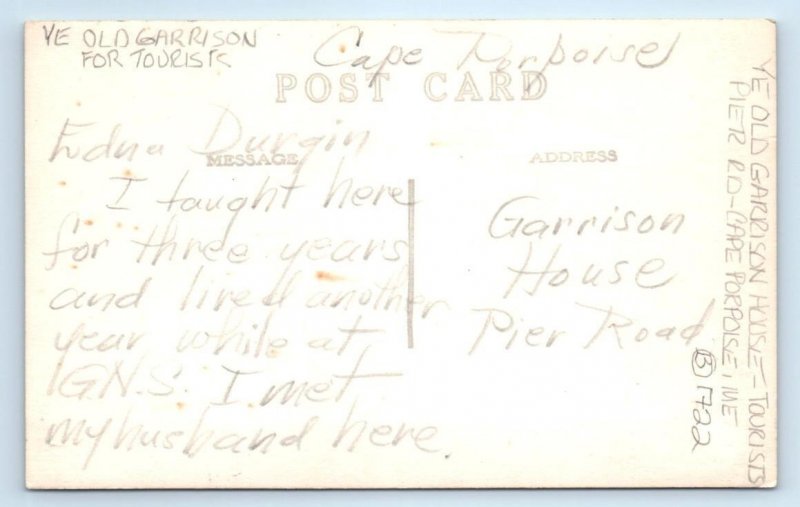 YE OLD GARRISON
FOR TOURISTS
Cape Porpoise
POST CARD
Edna Durgin
MESSAGE
I taught here
for three years
and lived another
year while at
G.N.S. I met
my husband here.
ADDRESS
Garrison
House
Pier Road
YE OLD GARRISON HOUSE - TOURISTS
PIER RD - CAPE PORPOISE, ME
B 1722